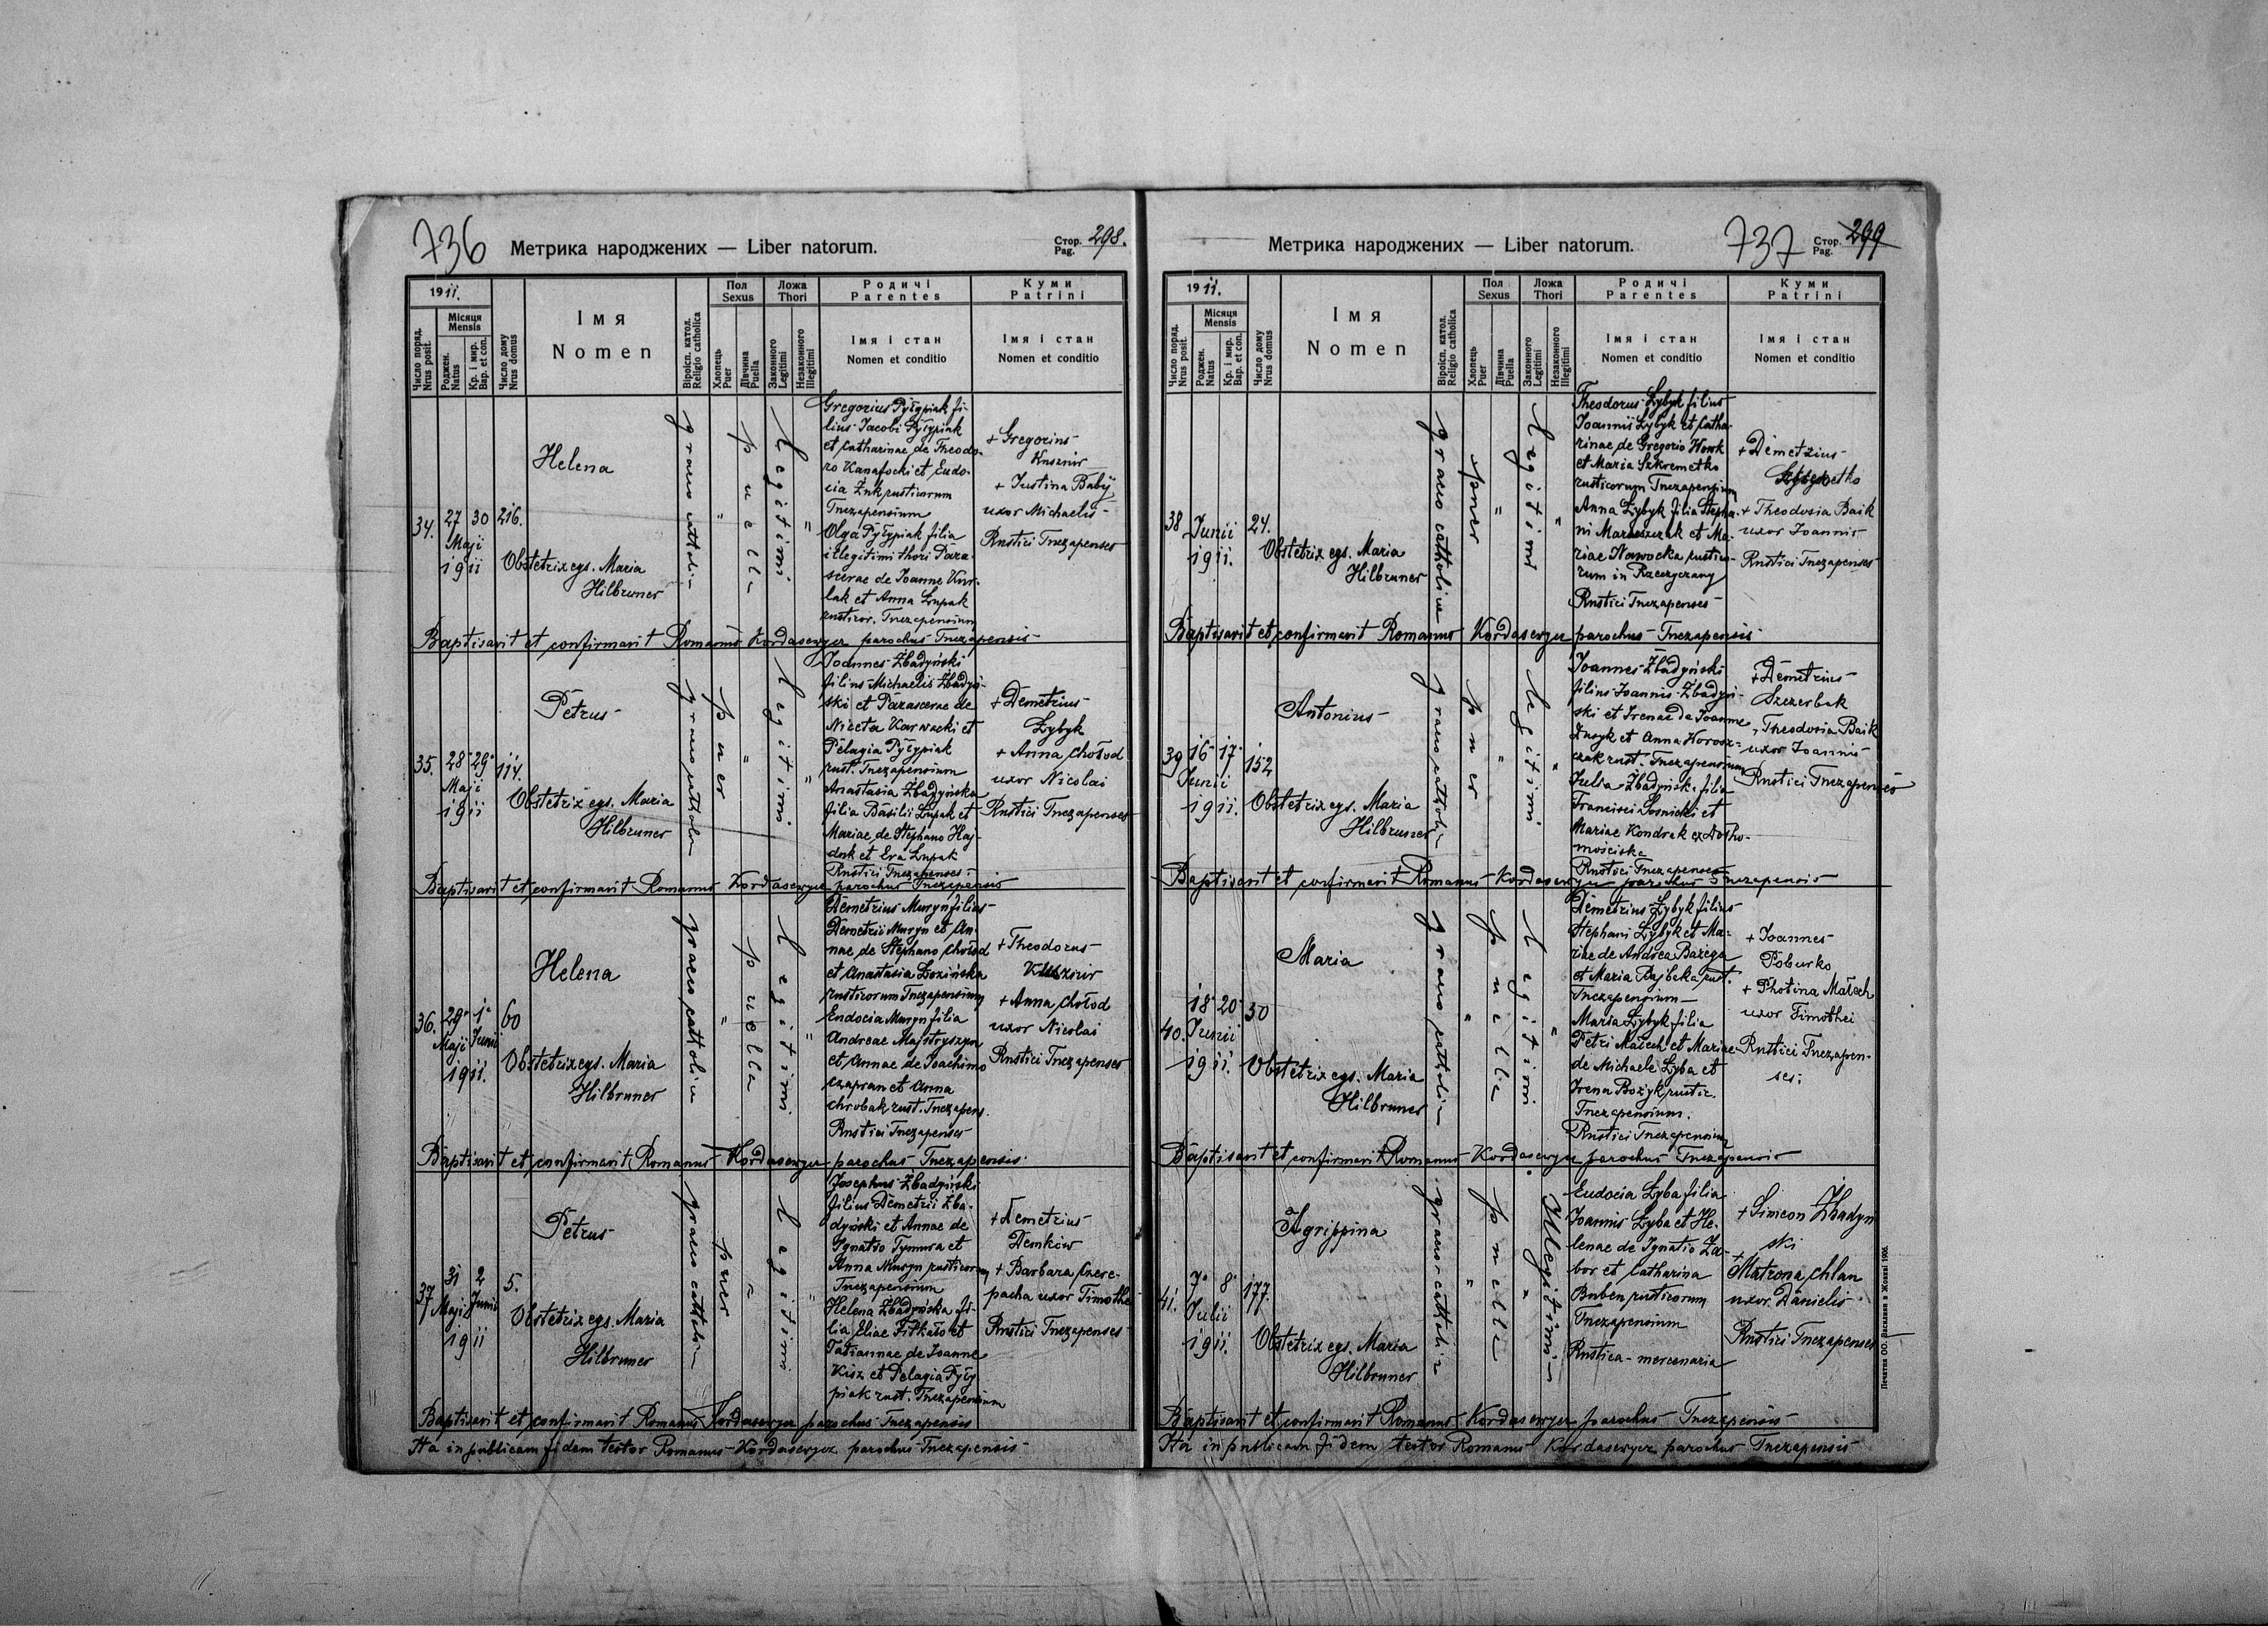 736
Метрика народжених — Liber natorum.
Стор. Pag. 298.
1911.
Число поряд. Nrus posit.
Місяця Mensis
Роджен. Natus
Кр. і мир. Bap. et con.
Число дому Nrus domus
Імя
Nomen
Віроісп. катол. Religio catholica
Пол Sexus
Хлопець Puer
Дівчина Puella
Ложа Thori
Законного Legitimi
Незаконного Illegitimi
Родичі Parentes
Імя і стан
Nomen et conditio
Куми Patrini
Імя і стан
Nomen et conditio
34. 27 30 216.
Maji
1911
Helena
Obstetrix egs. Maria
Hilbruner
graeco cattholica
puella
Legitimi
Gregorius Pyłypiak fi-
lius Jacobi Pyłypiak
et Catharinae de Theodo-
ro Kanafocki et Eudo-
cia Żuk rusticorum
Tuczapensium
Olga Pyłypiak filia
illegitimi thori Para-
scevae de Joanne Kur-
lak et Anna Łupak
rusticor. Tuczapensium
+ Gregorius
Kusznir
+ Justina Babij
uxor Michaelis
Rustici Tuczapenses
Baptisavit et confirmavit Romanus Kordasewycz parochus Tuczapensis
35. 28 29 114.
Maji
1911
Petrus
Obstetrix egs. Maria
Hilbruner
puer
Legitimi
Joannes Zbadyński
filius Michaelis Zbadyń-
ski et Parascevae de
Niceta Karwacki et
Pelagia Pyłypiak
rust. Tuczapensium
Anastasia Zbadyńska
filia Basilii Łupak et
Mariae de Stephano Haj-
duk et Eva Łupak
Rustici Tuczapenses
+ Demetrius
Zybyk
+ Anna Chołod
uxor Nicolai
Rustici Tuczapenses
Baptisavit et confirmavit Romanus Kordasewycz parochus Tuczapensis
36. 29 1 60
Maji Junii
1911.
Helena
Obstetrix egs. Maria
Hilbruner
graeco cattholica
puella
Legitimi
Demetrius Muryn filius
Demetrii Muryn et An-
nae de Stephano Chołod
et Anastasia Łozińska
rusticorum Tuczapensium
Eudocia Muryn filia
Andreae Majstryszyn
et Annae de Joachimo
Czapran et Anna
Chrobak rust. Tuczapens.
Rustici Tuczapenses
+ Theodorus
Kusznir
+ Anna Chołod
uxor Nicolai
Rustici Tuczapenses
Baptisavit et confirmavit Romanus Kordasewycz parochus Tuczapensis
37 31 2 5.
Maji Junii
1911
Petrus
Obstetrix egs. Maria
Hilbruner
graeco cattholica
puer
Legitimi
Josephus Zbadyński
filius Demetrii Zba-
dyński et Annae de
Ignatio Tymura et
Anna Muryn rusticorum
Tuczapensium
Helena Zbadyńska fi-
lia Eliae Fitkało et
Tatiannae de Joanne
Kisz et Pelagia Pyły
piak rust. Tuczapensium
+ Demetrius
Demkiw
+ Barbara Czere-
pacha uxor Timothei
Rustici Tuczapenses
Baptisavit et confirmavit Romanus Kordasewycz parochus Tuczapensis
Ita in publicam fidem testor Romanus Kordasewycz parochus Tuczapensis
Метрика народжених — Liber natorum.
737
Стор. Pag. 299
1911.
Число поряд. Nrus posit.
Місяця Mensis
Роджен. Natus
Кр. і мир. Bap. et con.
Число дому Nrus domus
Імя
Nomen
Віроісп. катол. Religio catholica
Пол Sexus
Хлопець Puer
Дівчина Puella
Ложа Thori
Законного Legitimi
Незаконного Illegitimi
Родичі Parentes
Імя і стан
Nomen et conditio
Куми Patrini
Імя і стан
Nomen et conditio
38 Junii 24.
1911.
Obstetrix egs. Maria
Hilbruner
graeco cattholica
puer
Legitimi
Theodorus Zybyk filius
Joannis Zybyk et Catha-
rinae de Gregorio Wowk
et Maria Szkremetko
rusticorum Tuczapensium
Anna Zybyk filia Stepha-
ni et Ma-
riae Nawocka rustico-
rum in
Rustici Tuczapenses
+ Demetrius
+ Theodosia Baik
uxor Joannis
Rustici Tuczapenses
Baptisavit et confirmavit Romanus Kordasewycz parochus Tuczapensis
39 16 17 152
Junii
1911.
Antonius
Obstetrix egs. Maria
Hilbruner
puer
Legitimi
Joannes Zbadyński
filius Joannis Zbadyń-
ski et Irenae de Joanne
Dusyk et Anna Worosz-
czak rust. Tuczapensium
Julia Zbadyńska filia
Francisci Sosnicki et
Mariae Kondrak ex Dobro-
mościska
Rustici Tuczapenses
+ Demetrius
Szczerbak
Theodosia Baik
uxor Joannis
Rustici Tuczapenses
Baptisavit et confirmavit Romanus Kordasewycz parochus Tuczapensis
40. 18 20 30
Junii
1911.
Maria
Obstetrix egs. Maria
Hilbruner
graeco cattholica
puella
Legitimi
Demetrius Zybyk filius
Stephani Zybyk et Ma-
riae de Andrea Barega
et Maria Bajbaka rust.
Tuczapensium
Maria Zybyk filia
Petri Małech et Mariae
de Michaele Zyba et
Irena Bożyk rustic.
Tuczapensium.
Rustici Tuczapensium
+ Joannes
Poburko
+ Photina Małech
uxor Timothei
Rustici Tuczapen-
ses.
Baptisavit et confirmavit Romanus Kordasewycz parochus Tuczapensis
41. 7 8 177.
Julii
1911.
Agrippina
Obstetrix egs. Maria
Hilbruner
graeco cattholica
puella
Illegitimi
Eudocia Zyba filia
Joannis Zyba et He-
lenae de Ignatio Za-
bor et Catharina
Buben rusticorum
Tuczapensium
Rustica mercenaria
+ Simeon Zbadyń
ski
+ Matrona Chlan
uxor Danielis
Rustici Tuczapenses
Baptisavit et confirmavit Romanus Kordasewycz parochus Tuczapensis
Ita in publicam fidem testor Romanus Kordasewycz parochus Tuczapensis
Печатня ОО. Василиян в Жовкві 1906.